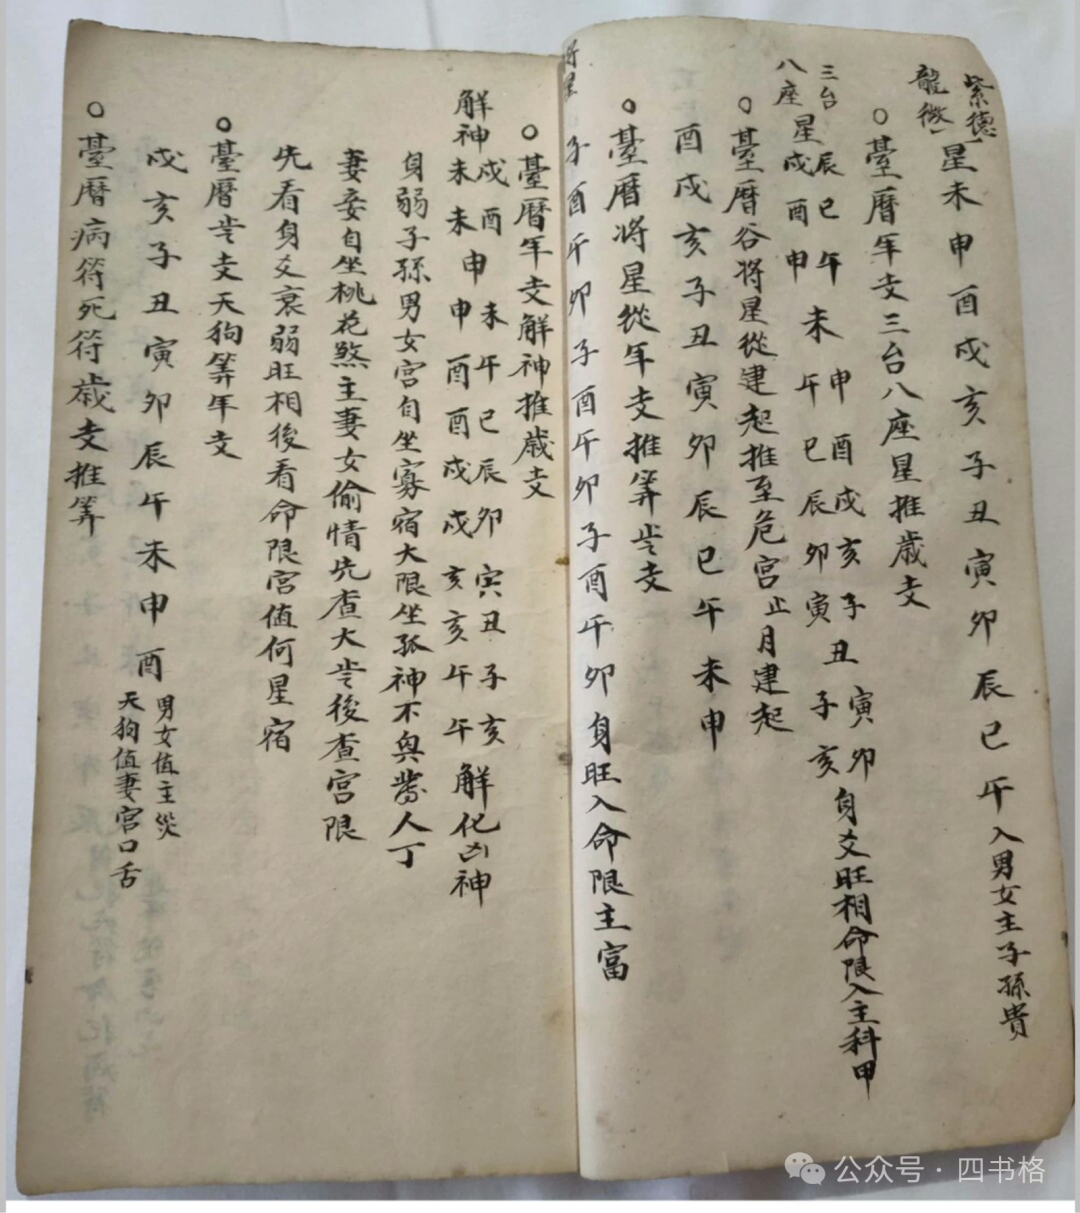 紫德
龍微
星未申酉戌亥子丑寅卯辰巳午入男女主子孫貴
○臺曆年支三台八座星推歲支
三台
八座
星
辰巳午未申酉戌亥子丑寅卯
戌酉申未午巳辰卯寅丑子亥
身爻旺相命限入主科甲
○臺曆谷將星從建起推至危宮止月建起
酉戌亥子丑寅卯辰巳午未申
○臺曆將星從年支推筭歲支
將星
子酉午卯子酉午卯子酉午卯身旺入命限主富
○臺曆年支解神推歲支
解神
戌酉申未午巳辰卯寅丑子亥
未未申申酉酉戌戌亥亥午午
解化凶神
身弱子孫男女宮自坐寡宿大限坐孤神不與喪人丁
妻妾自坐桃花煞主妻女偷情先查大歲後查宮限
先看身爻衰弱旺相後看命限宮值何星宿
○臺曆歲支天狗筭年支
戌亥子丑寅卯辰午未申酉
男女值主災
天狗值妻宮口舌
○臺曆病符死符歲支推筭
公众号·四书格